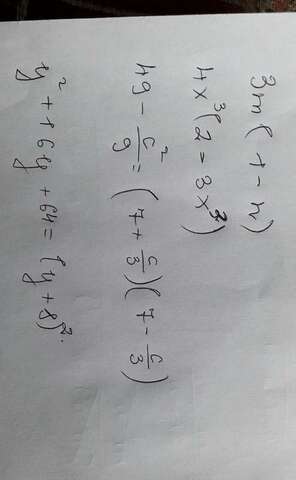 3m(1-n)
4x³(2-3x²)
49 - c²/9 = (7 + c/3)(7 - c/3)
y² + 16y + 64 = (y + 8)².